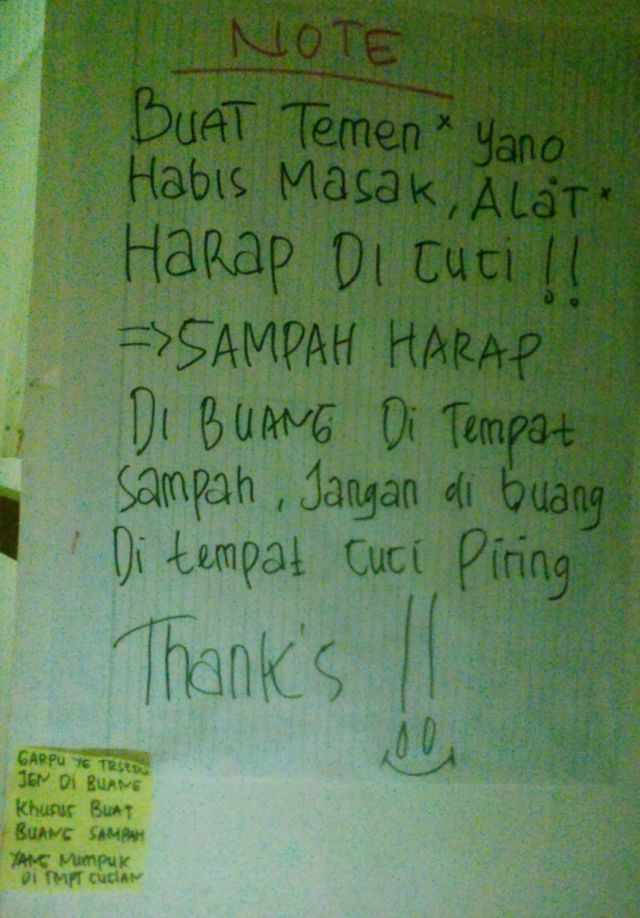 NOTE
BUAT Temen x yang
Habis Masak, ALAT x
HARAP DI CUCI !!
=> SAMPAH HARAP
DI BUANG Di Tempat
Sampah, Jangan di buang
Di tempat cuci Piring
Thank's !!
GARPU YG
JGN DI BUANG
Khusus BUAT
BUANG SAMPAH
YANG NUMPUK
DI TMPT CUCIAN